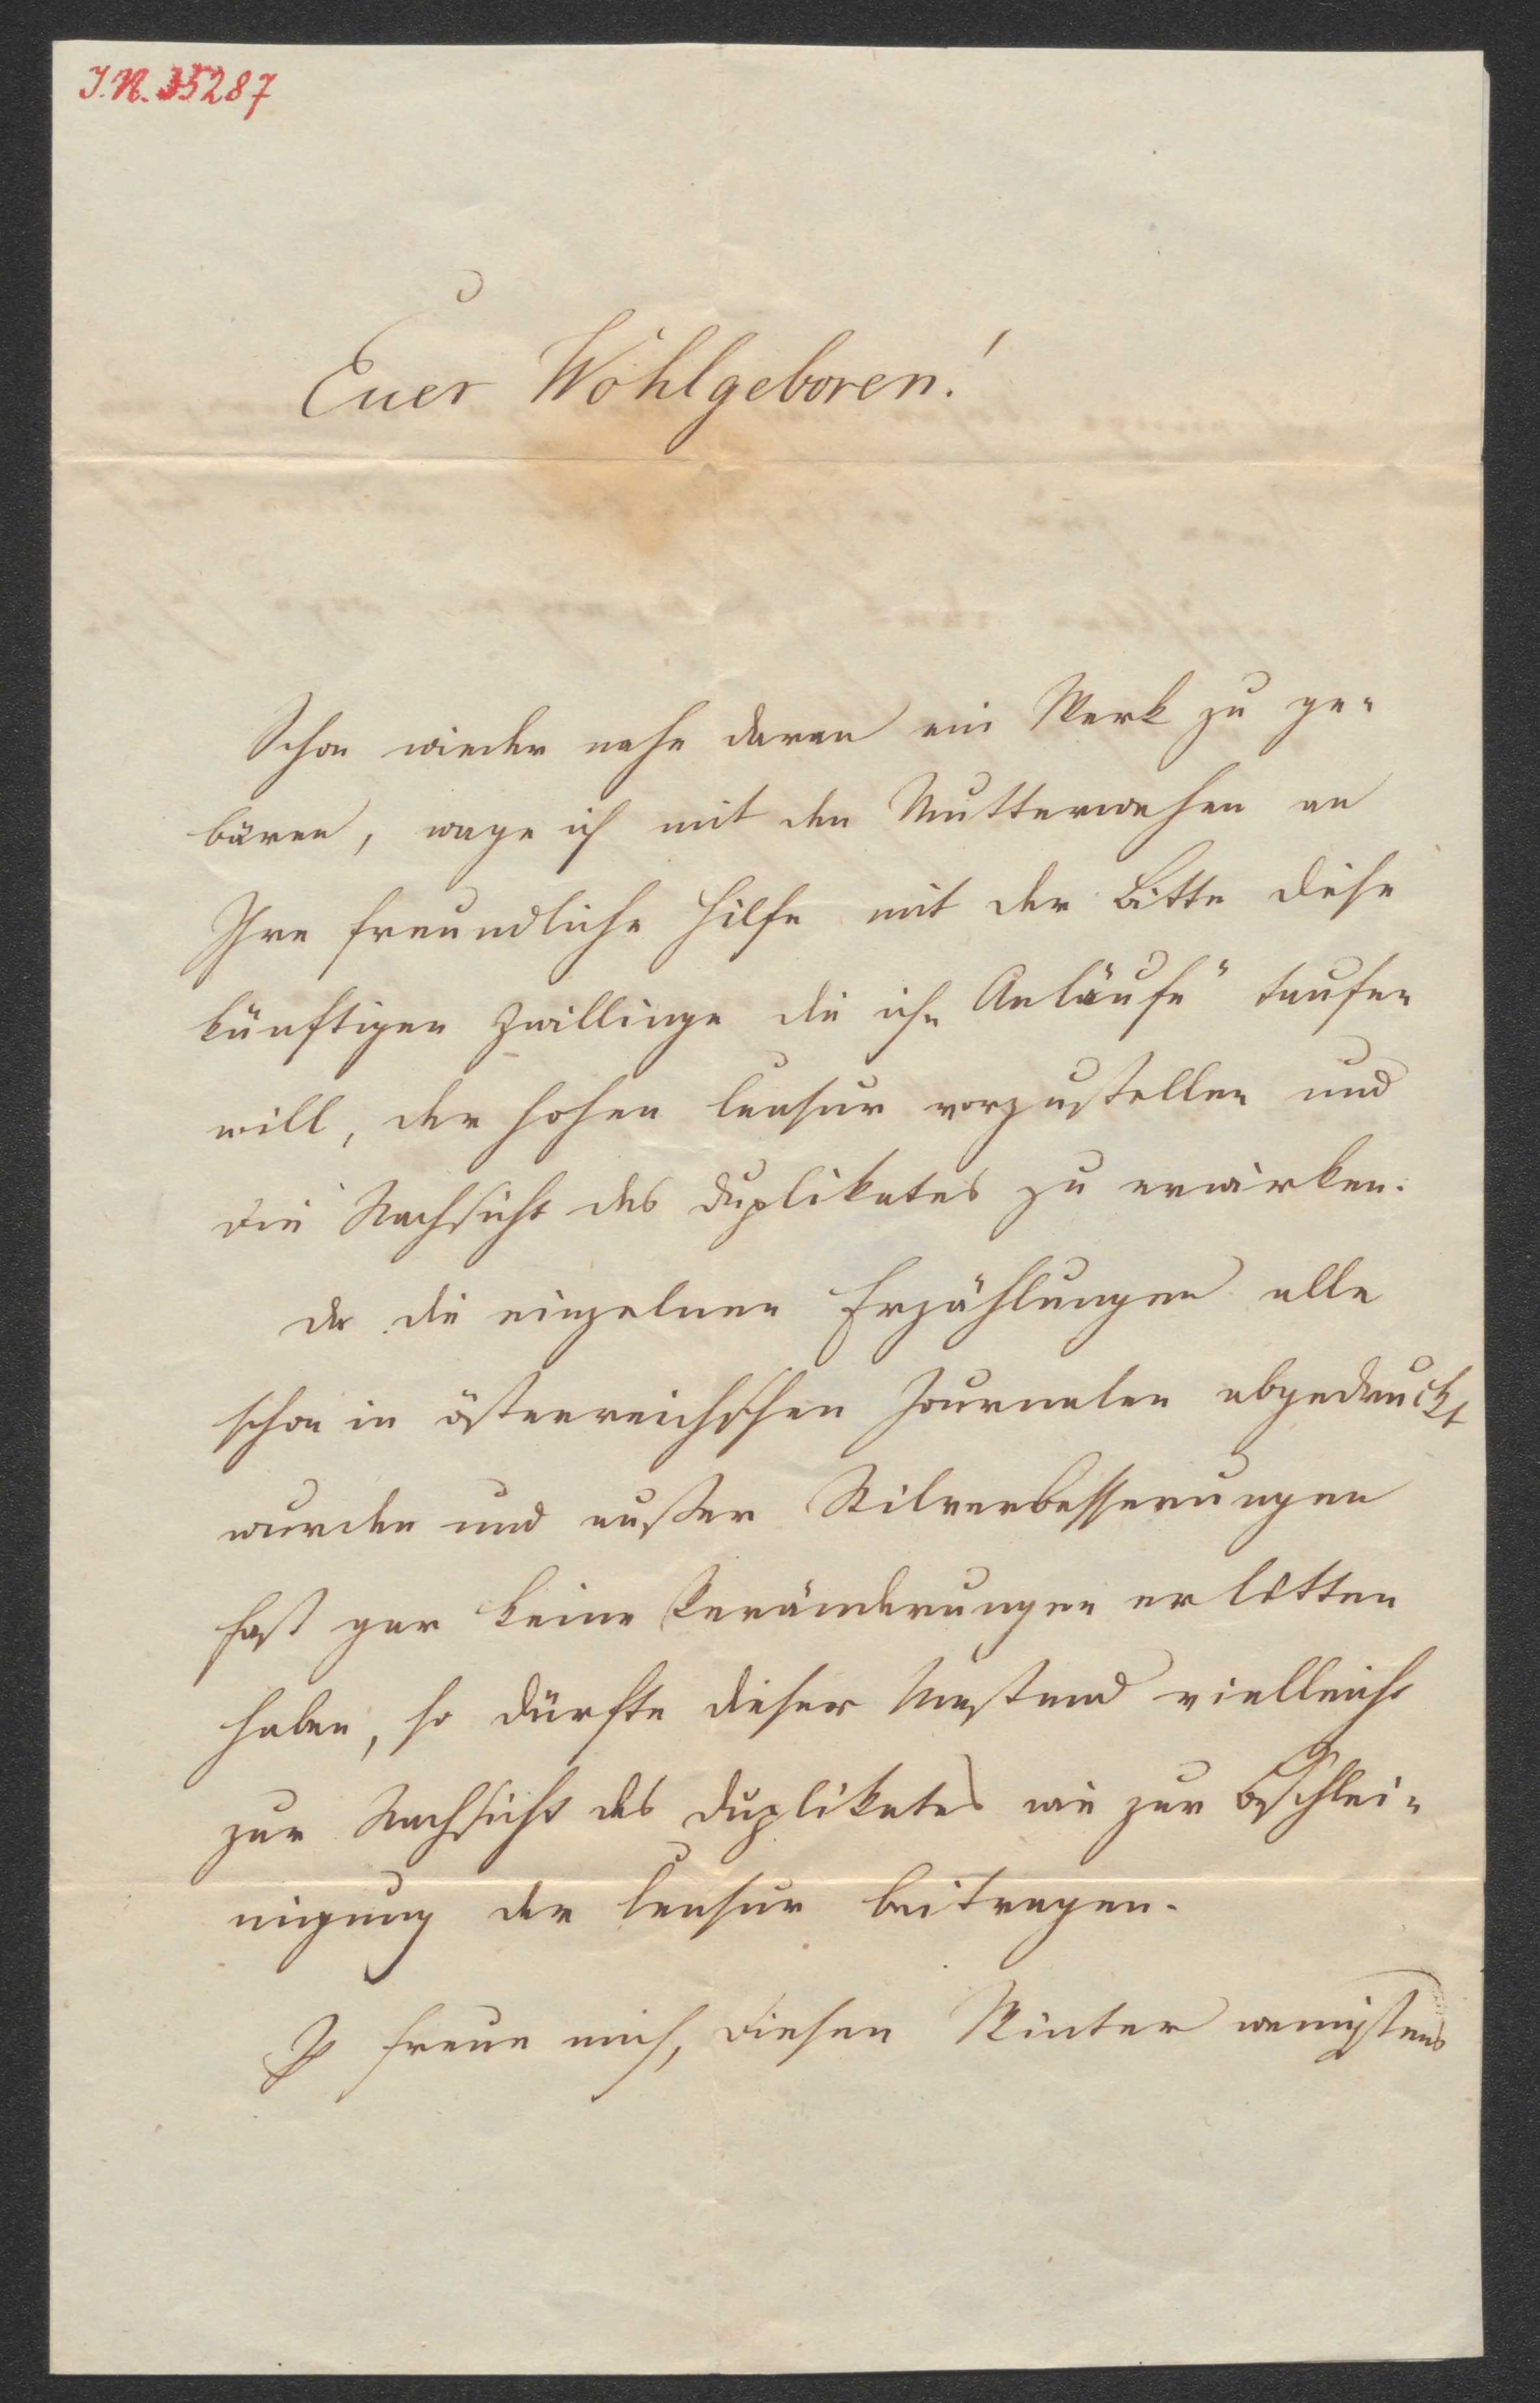 I.N. 35287
Euer Wohlgeboren!
Schon wieder nahe daran ein Werk zu ge-
bären, wage ich mit den Mutterwehen an
Ihre freundliche Hilfe mit der Bitte diese
künftigen Zwillinge die ich „Anläufe" taufen
will, der hohen Censur vorzustellen und
die Nachsicht des Duplikates zu erwirken.
Da die einzelnen Erzählungen alle
schon in österreichschen Journalen abgedruckt
wurden und außer Stilverbesserungen
fast gar keine Veränderungen erlitten
haben, so dürfte dieser Umstand vielleicht
zur Nachsicht des Duplikates wie zur Beschlei-
nigung der Censur beitragen.
Ich freue mich, diesen Winter wenigstens